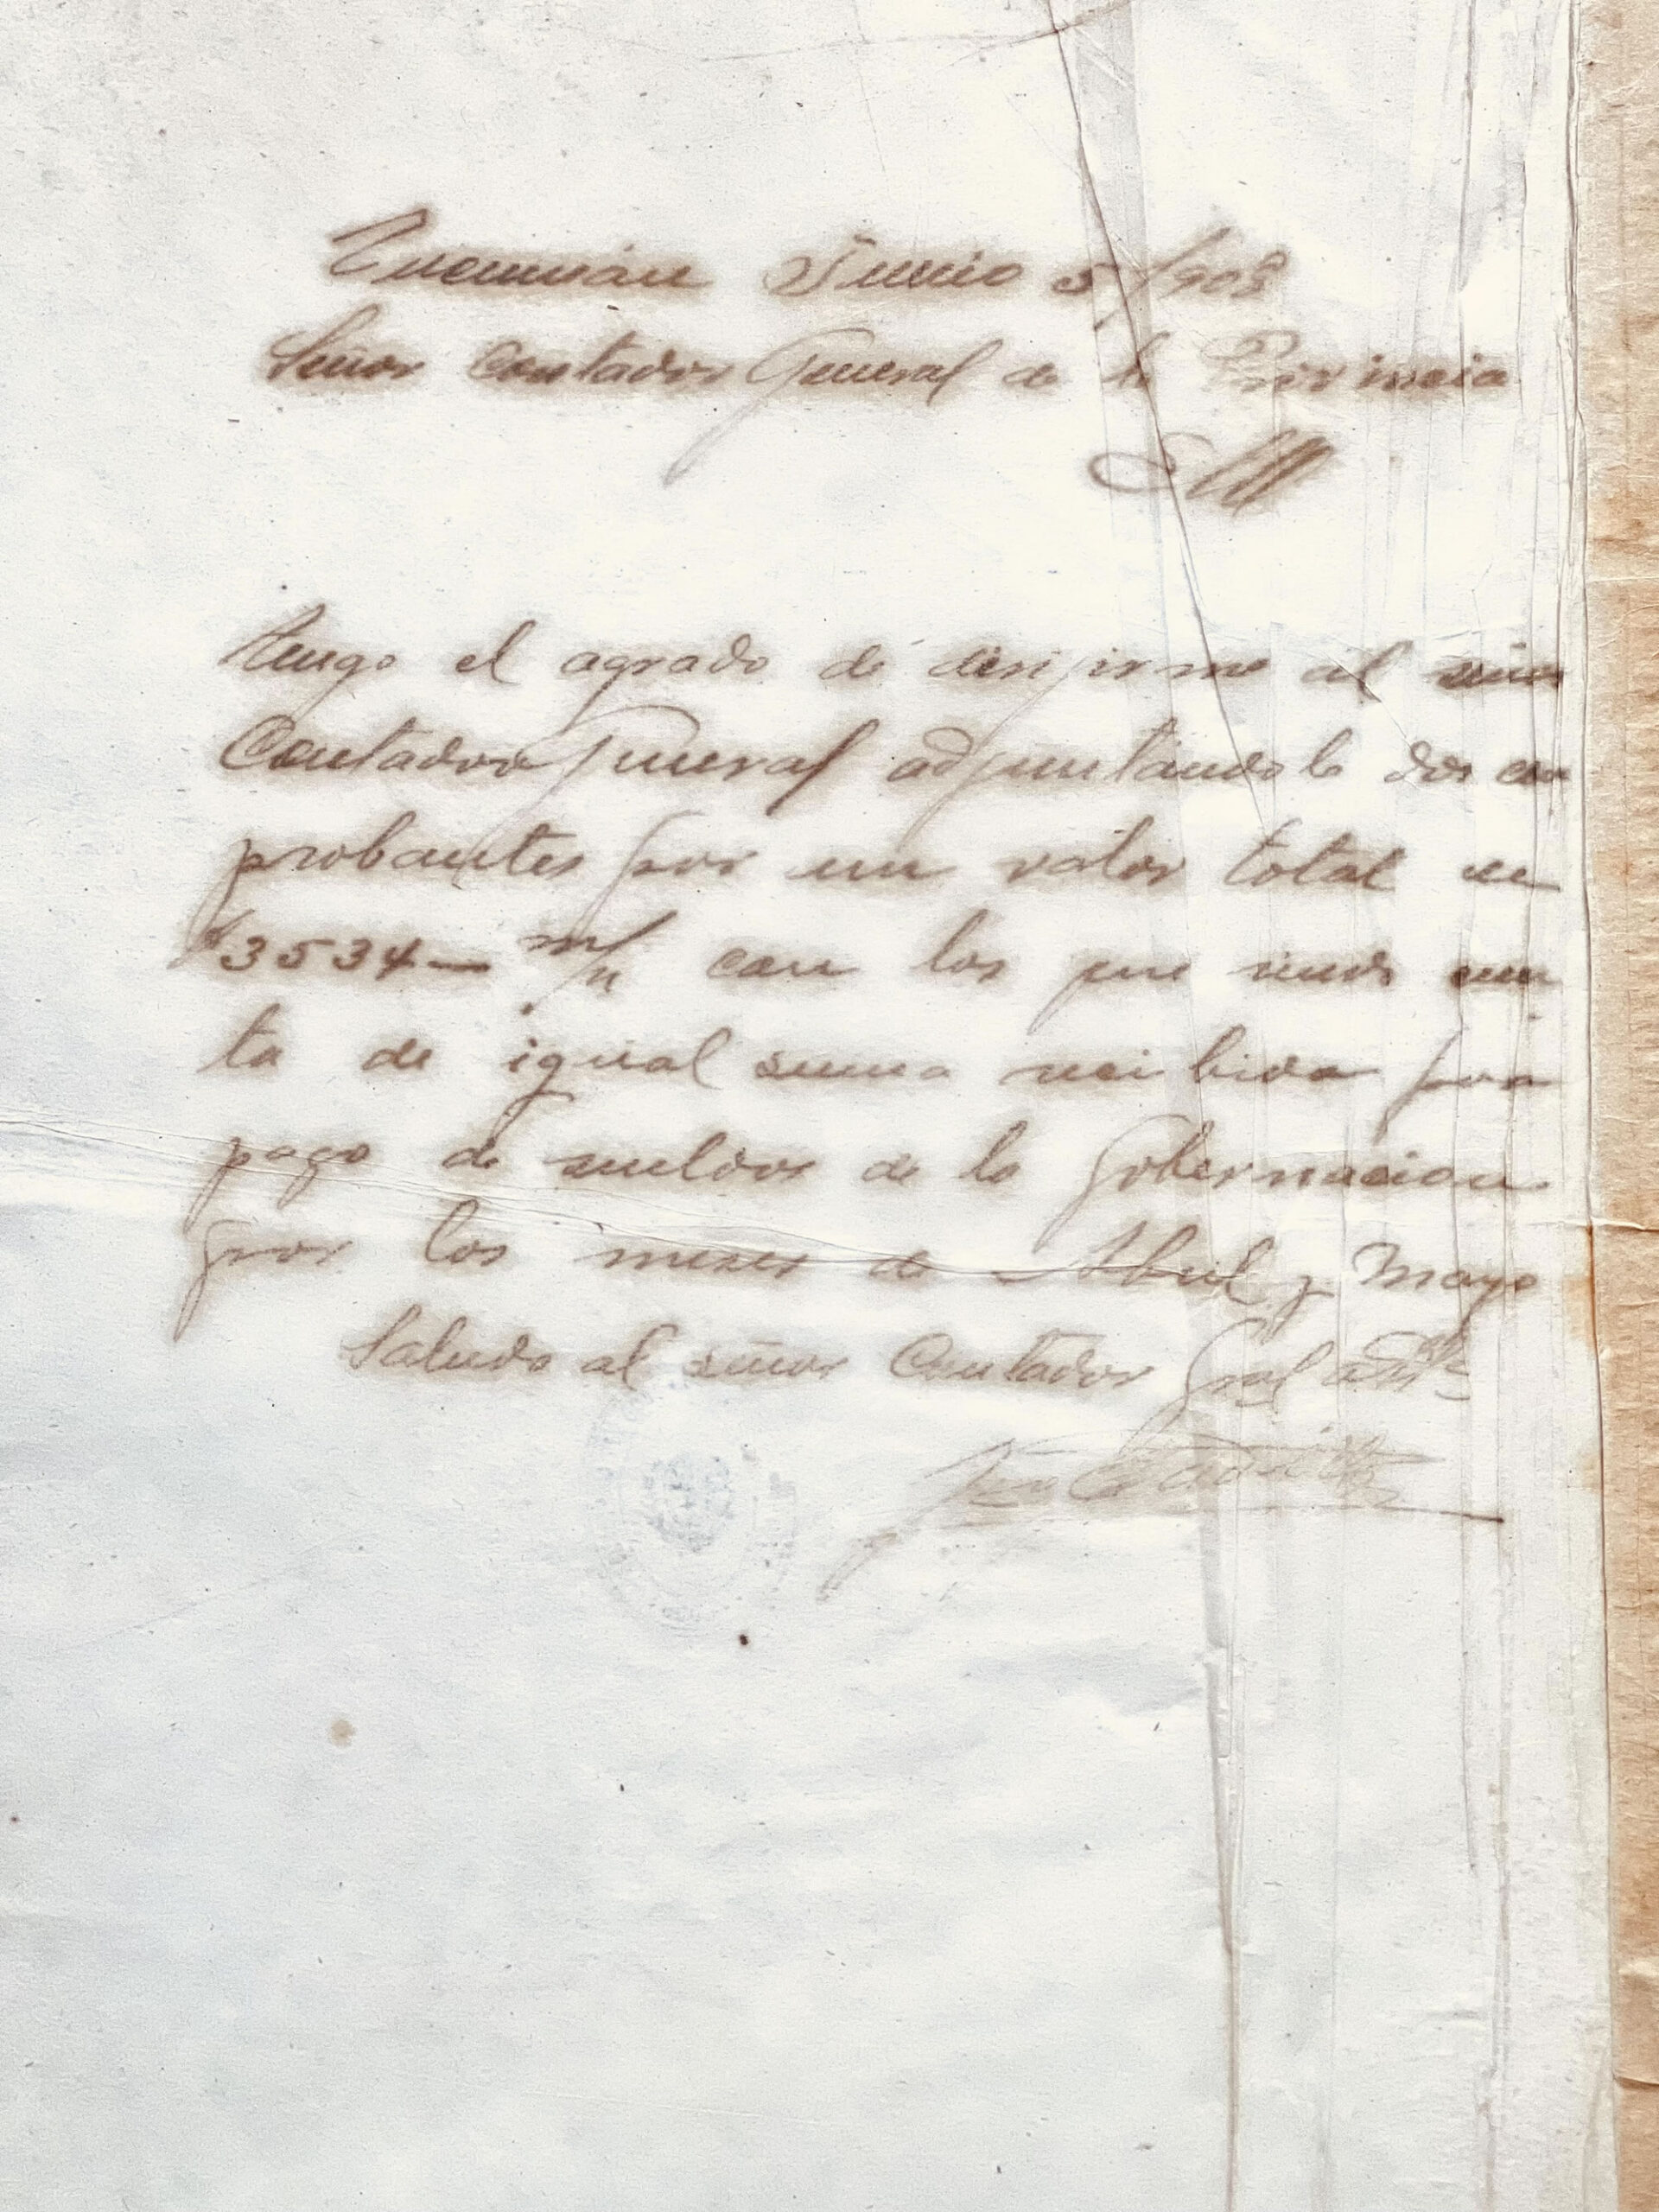 Tucumán Junio 5/908
Señor Contador General de la Provincia
Tengo el agrado de dirijirme al señor
Contador General adjuntándole dos com
probantes por un valor total de
$3534— m/n con los que rindo cuen
ta de igual suma recibida para
pago de sueldos de la Gobernacion
por los meses de Abril y Mayo
Saludo al señor Contador Gral